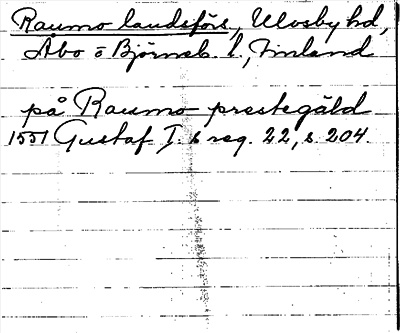 Raumo landsförs., Ulvsby hd,
Åbo o Björneb. l., Finland
på Raumo prestegäld
1551 Gustaf I. s reg. 22, s. 204.